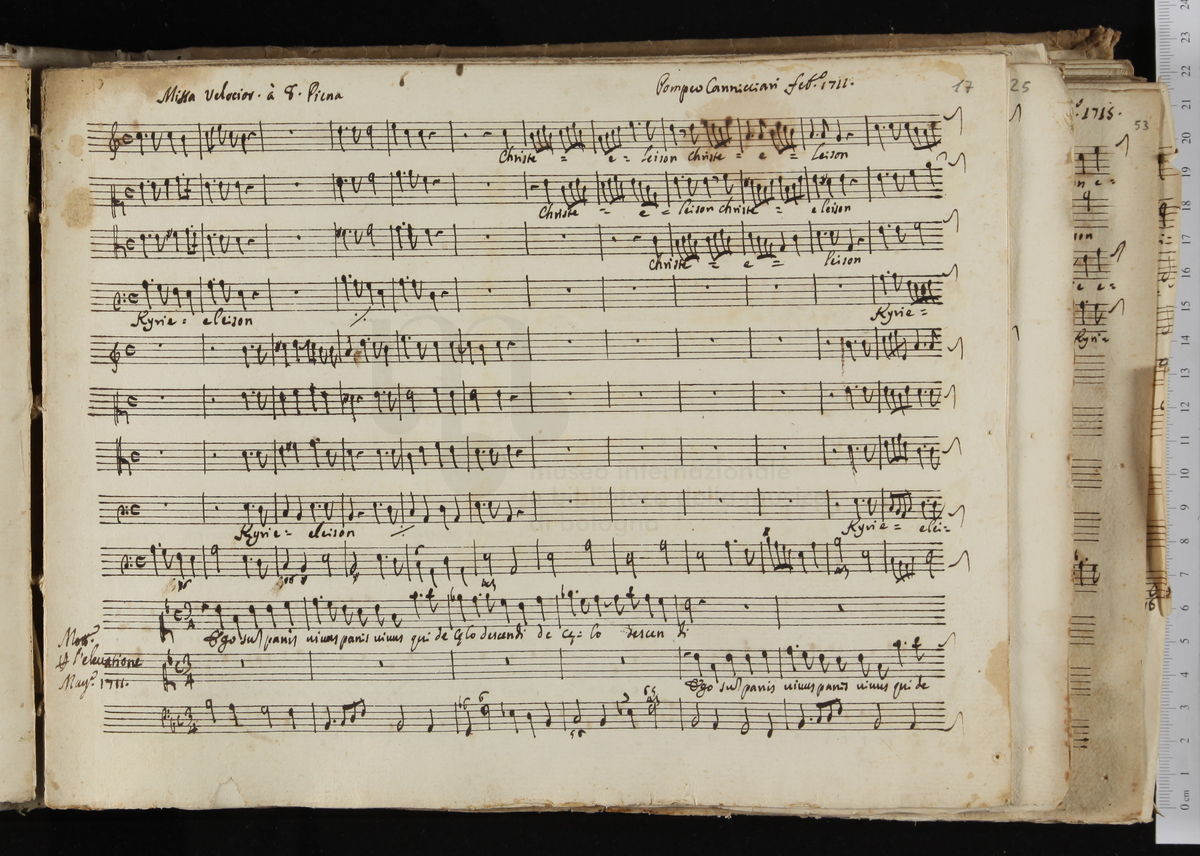 Missa Velocior. à 8. Piena Pompeo Cannicciari feb.º 1711. 17 25
Christe = e = leison Christe = e = leison
Christe = e = leison christe = eleison
Christe = e = leison
Kyrie = eleison Kyrie =
Kyrie = eleison Kyrie = elei =
Ego sum panis vivus panis vivus qui de Cęlo descendi de Cę = lo descen di
l'elevatione
Mag.º 1711.
Ego sum panis vivus panis vivus qui de
1715. 53
Kyrie
museo internazionale
e biblioteca della musica
di bologna
0 cm 1 2 3 4 5 6 7 8 9 10 11 12 13 14 15 16 17 18 19 20 21 22 23 24